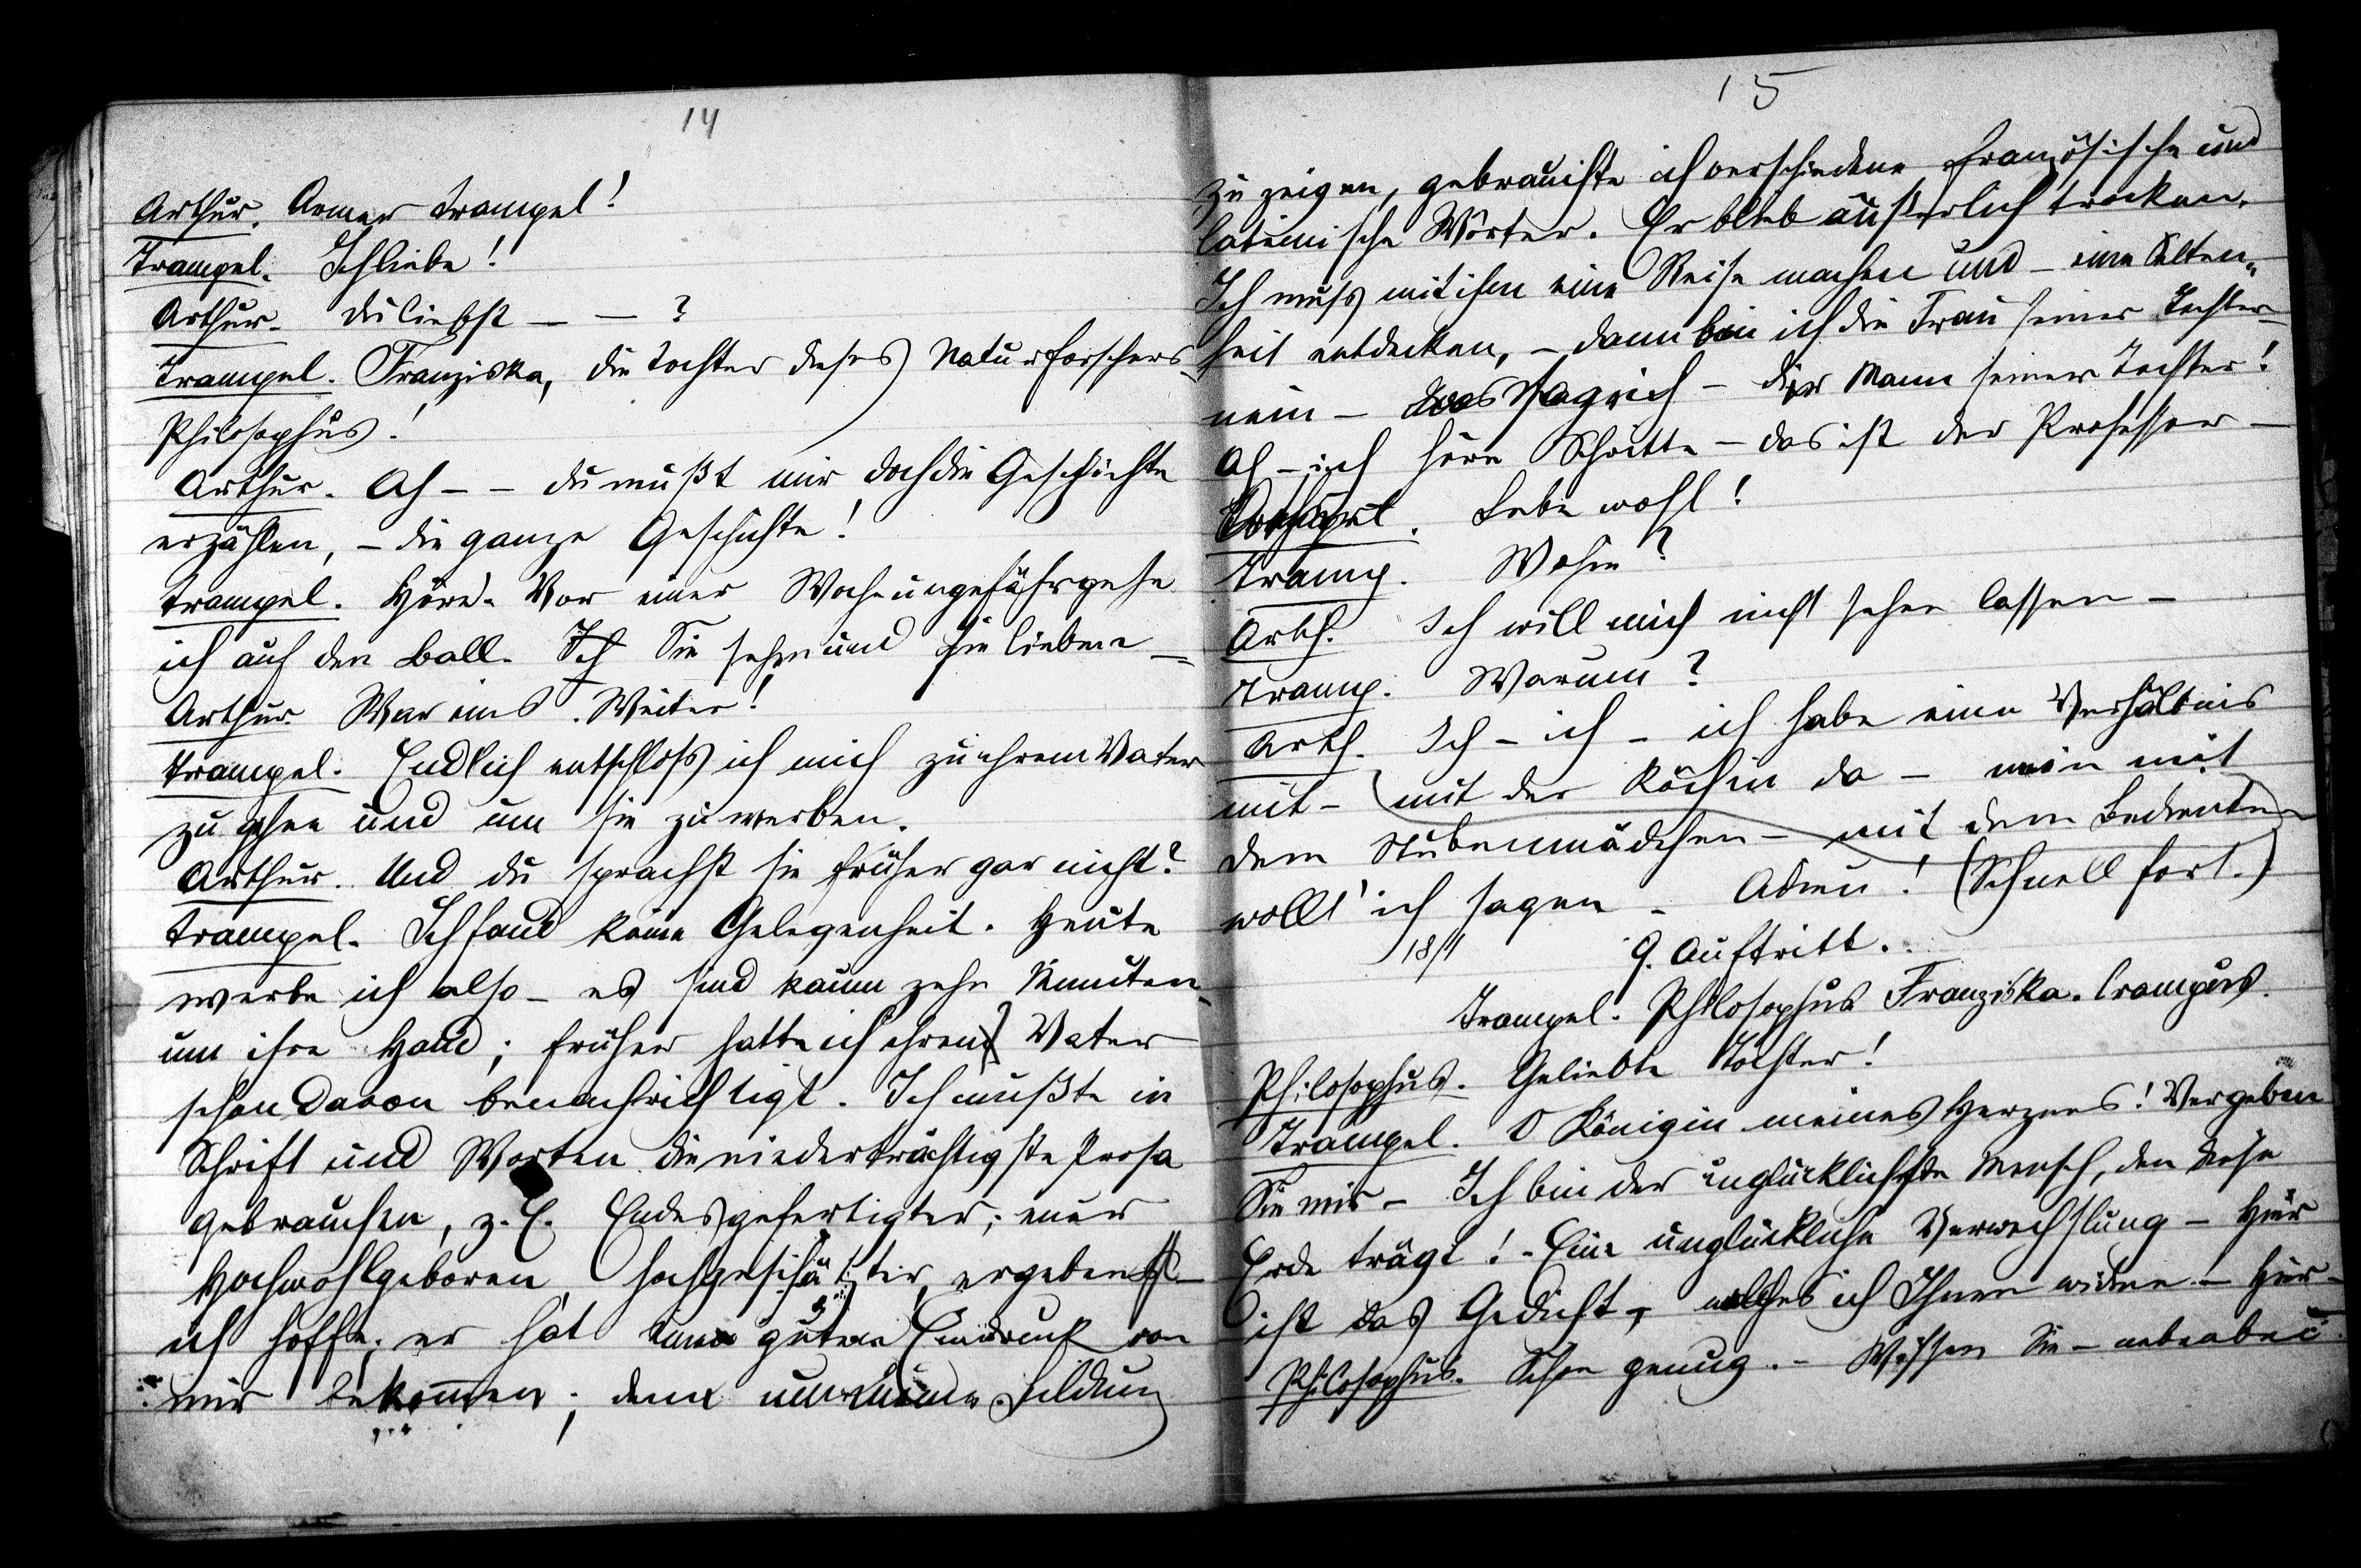 14
Arthur. Armer Trampel!
Trampel. Ich liebe!
Arthur. Du liebst – – ?
Trampel. Franziska, die Tochter dieses Naturforschers
Philosophus!
Arthur. Ah – – du mußt mir doch die Geschichte
erzählen, – die ganze Geschichte!
Trampel. Höre. Vor einer Woche ungefähr gehe
ich auf den Ball. Ich Sie sehen und sie lieben –
Arthur War eins. Weiter!
Trampel. Endlich entschloss ich mich zu ihrem Vater
zu gehen und um sie zu werben.
Arthur. Und du sprachst sie früher gar nicht?
Trampel. Ich fand keine Gelegenheit. Heute
werbe ich also – es sind kaum zehn Minuten –
um ihre Hand; früher hatte ich ihren Vater
schon davon benachrichtigt. Ich mußte in
Schrift und Worten die niederträchtigste Prosa
gebrauchen, z. E. Endesgefertigter; euer
Hochwohlgeboren, hochgeschätzter, ergebenst –
ich hoffe, er hat einen guten Eindruck von
mir bekommen; denn um meine Bildung
15
zu zeigen, gebrauchte ich verschiedene französische und
lateinische Wörter. Er blieb äußerlich trocken.
Ich muss mit ihm eine Reise machen und – eine Selten„
heit entdecken, – dann bin ich die Frau seiner Tochter –
nein – was sag ich – der Mann seiner Tochter!
Ah – ich höre Schritte – das ist der Professor –
. Lebe wohl!
Tramp. Wohin?
Arth. Ich will mich nicht sehen lassen –
Tramp. Warum?
Arth. Ich – ich – ich habe ein Verhältnis
mit – mit der Köchin da – nein mit
dem Stubenmädchen – mit dem Bedienten
wollt' ich sagen – Adieu! (Schnell fort.)
18/1 9. Auftritt.
Trampel. Philosophus Franziska. Crampus.
Philosophus. Geliebte Tochter!
Trampel. O Königin meines Herzens! Vergeben
Sie mir – Ich bin der unglücklichste Mensch, den diese
Erde trägt! – Eine unglückliche Verwechslung – Hier
ist das Gedicht, welches ich Ihnen widme – Hier –
Philosophus. Schon genug. – Wissen Sie – nebenbei